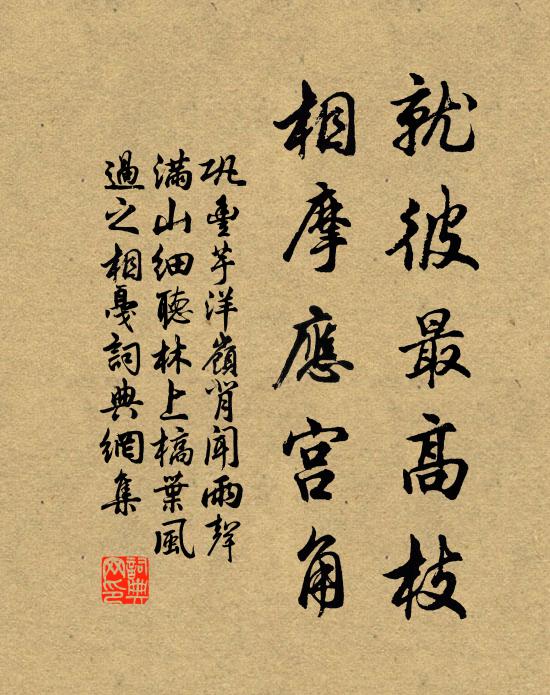 就彼最高枝
相摩應宮角
巩豊芋洋嶺肖闻雨聲
滿山细聽林上槁葉風
過之相戛詞典網集
詞典
网印